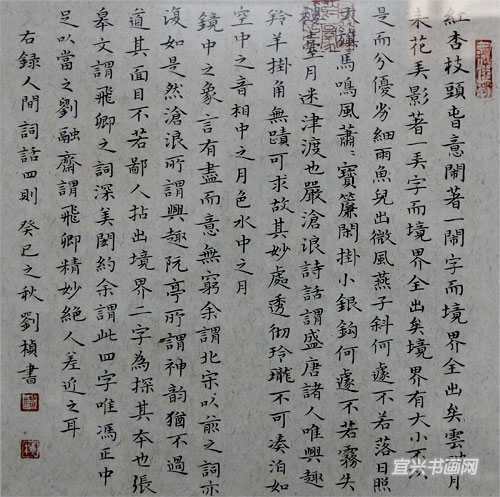 紅杏枝頭旾意鬧著一鬧字而境界全出矣雲破月
来花弄影著一弄字而境界全出矣境界有大小不以
是而分優劣細雨魚兒出微風燕子斜何遽不若落日照
大旗馬鳴風蕭〻寶簾閒掛小銀鉤何遽不若霧失
樓臺月迷津渡也嚴滄浪詩話謂盛唐諸人唯興趣
羚羊掛角無蹟可求故其妙處透彻玲瓏不可湊泊如
空中之音相中之月色水中之月
鏡中之象言有盡而意無窮余謂北宋以前之詞亦
復如是然滄浪所謂興趣阮亭所謂神韵猶不過
道其面目不若鄙人拈出境界二字為探其本也張
皋文謂飛卿之詞深美閎約余謂此四字唯馮正中
足以當之劉融齋謂飛卿精妙絕人差近之耳
右録人間詞話四則 癸巳之秋劉楨書
宜兴书画网